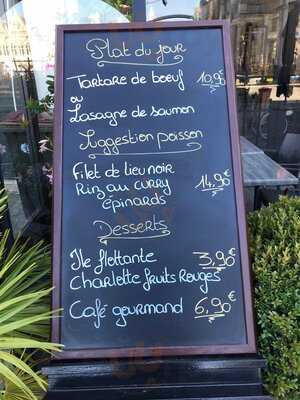 Plat du jour
Tartare de bœuf 10,90€
ou
Lasagne de saumon
Suggestion poisson
Filet de lieu noir
Riz au curry 14,90€
épinards
Desserts
Ile flottante 3,90€
Charlotte fruits Rouges
Café gourmand 6,90€